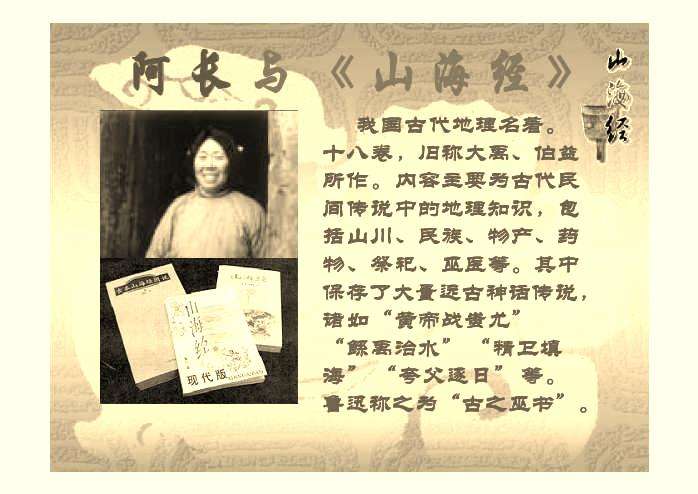 阿长与《山海经》
山海经
我国古代地理名著。
十八卷，旧称大禹、伯益
所作。内容主要为古代民
间传说中的地理知识，包
括山川、民族、物产、药
物、祭祀、巫医等。其中
保存了大量远古神话传说，
诸如“黄帝战蚩尤”
“鲧禹治水” “精卫填
海” “夸父逐日” 等。
鲁迅称之为“古之巫书”。
山海经
现代版